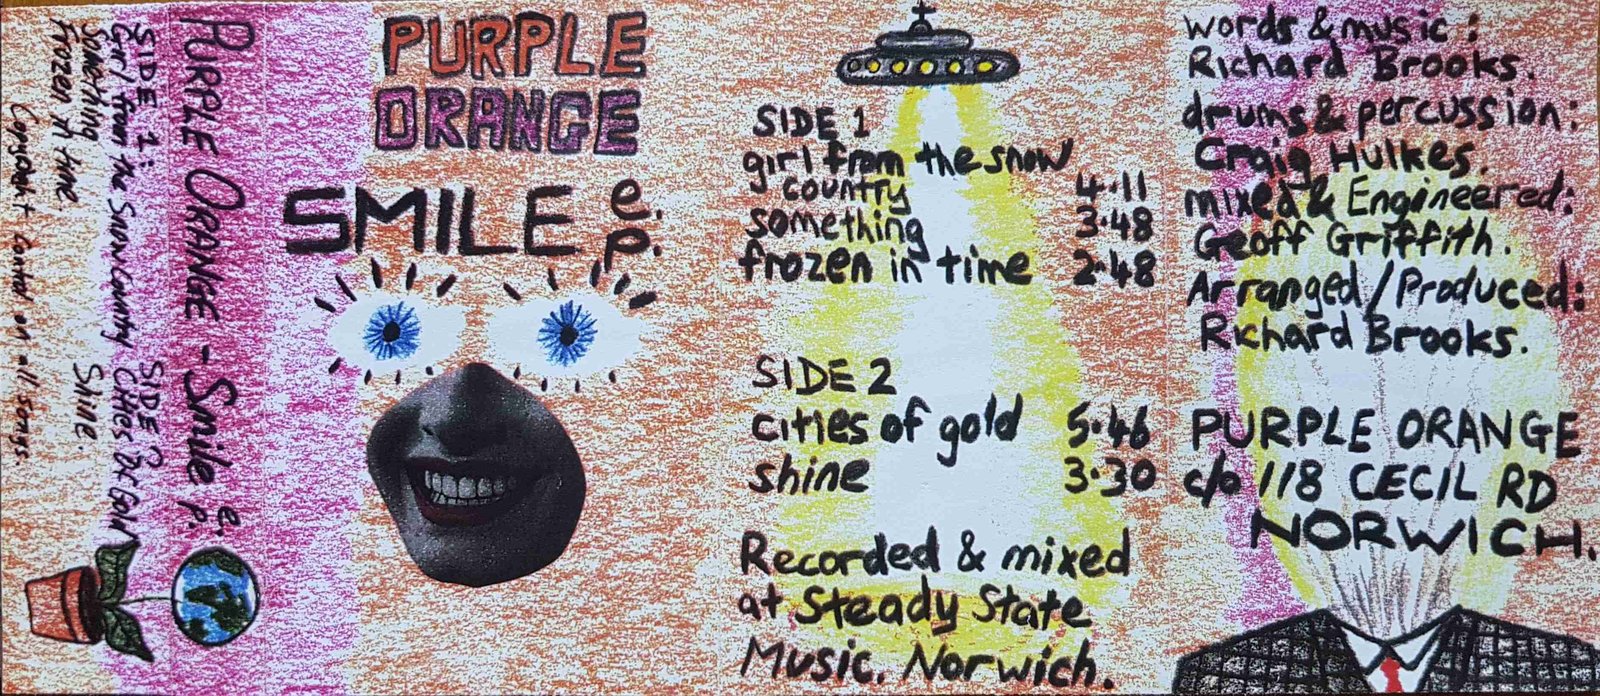 SIDE 1:
Girl from the Snow Country
Something
Frozen in time.
SIDE 2
Cities Of Gold
Shine.
Copyright Control on all songs.
PURPLE ORANGE - Smile e.p.
PURPLE
ORANGE
SMILE e.p.
SIDE 1
girl from the snow
country 4.11
something 3.48
frozen in time 2.48
SIDE 2
cities of gold 5.46
shine 3.30
Recorded & mixed
at Steady State
Music, Norwich.
words & music:
Richard Brooks.
drums & percussion:
Craig Hulkes.
mixed & Engineered:
Geoff Griffith.
Arranged/Produced:
Richard Brooks.
PURPLE ORANGE
c/o 118 CECIL RD
NORWICH.